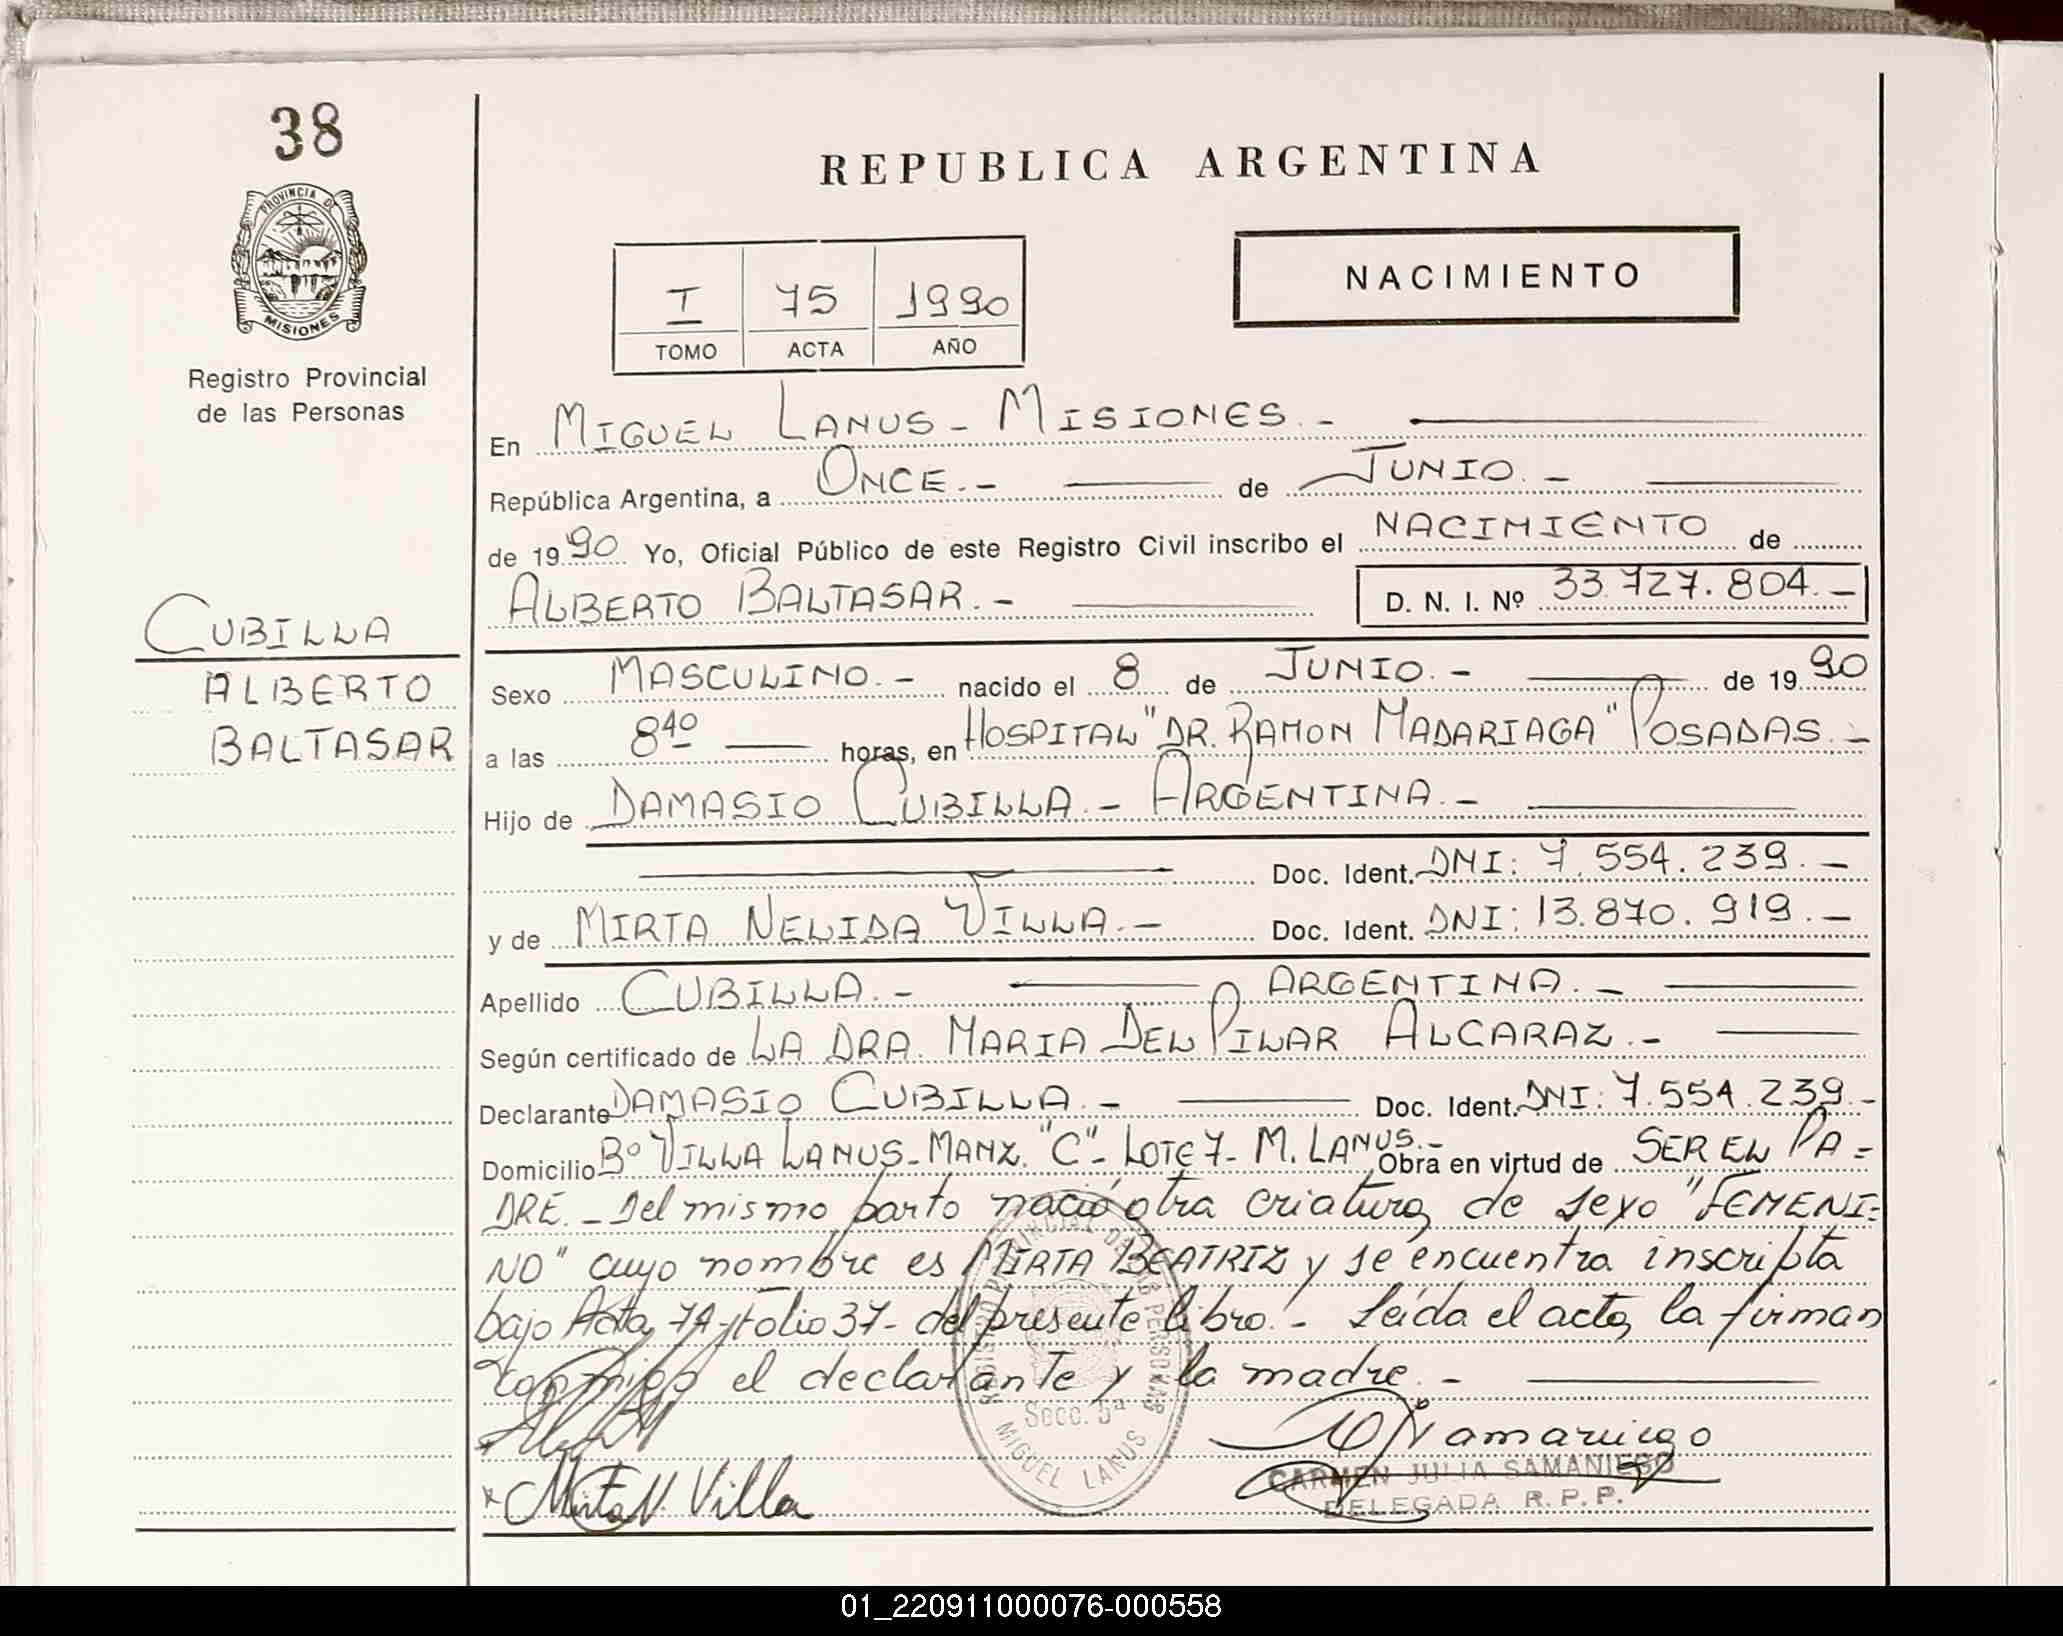 38
PROVINCIA DE
MISIONES
Registro Provincial
de las Personas
CUBILLA
ALBERTO
BALTASAR
REPUBLICA ARGENTINA
I 75 1990
TOMO ACTA AÑO
NACIMIENTO
En MIGUEL LANUS - MISIONES. -
República Argentina, a ONCE. - de JUNIO. -
de 1990 Yo, Oficial Público de este Registro Civil inscribo el NACIMIENTO de
ALBERTO BALTASAR. - D. N. I. Nº 33.727.804. -
Sexo MASCULINO. - nacido el 8 de JUNIO. - de 1990
a las 8 40 horas, en HOSPITAL "DR. RAMON MADARIAGA" POSADAS. -
Hijo de DAMASIO CUBILLA. - ARGENTINA. -
Doc. Ident. DNI: 7.554.239. -
y de MIRTA NELIDA VILLA. - Doc. Ident. DNI: 13.870.919. -
Apellido CUBILLA. - ARGENTINA. -
Según certificado de LA DRA. MARIA DEL PILAR ALCARAZ. -
Declarante DAMASIO CUBILLA. - Doc. Ident. DNI: 7.554.239. -
Domicilio Bº VILLA LANUS - MANZ. "C" - LOTE 7 - M. LANUS. - Obra en virtud de SER EL PA=
DRE. - Del mismo parto nació otra criatura de sexo "FEMENI=
NO" cuyo nombre es MIRTA BEATRIZ y se encuentra inscripta
bajo Acta 74 - folio 37 - del presente libro. - Leída el acta, la firman
conmigo el declarante y la madre. -
REGISTRO PROVINCIAL DE LAS PERSONAS
Secc. 5ª
MIGUEL LANUS
Mirta N. Villa
CARMEN JULIA SAMANIEGO
DELEGADA R. P. P.
01_220911000076-000558